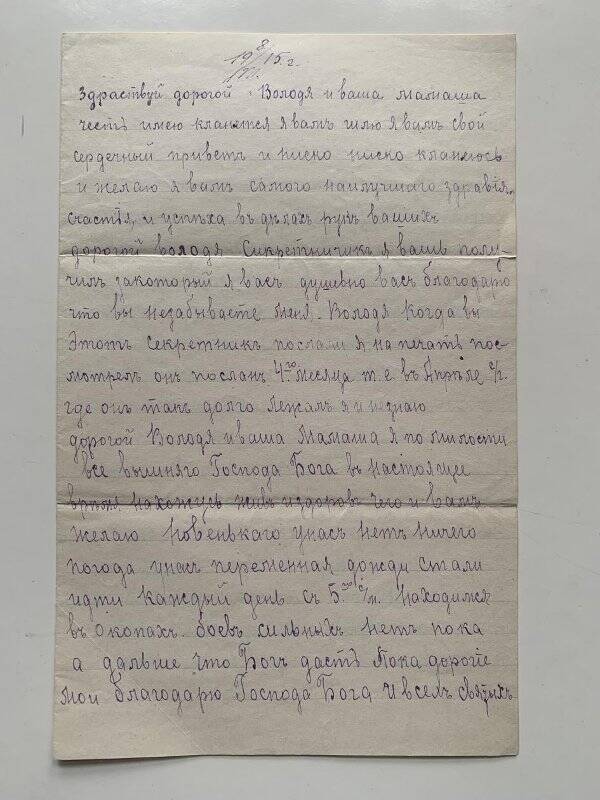 19 8/VII 15 г.
Здраствуй дорогой Володя и ваша мамаша
честь имею кланятся я вамъ шлю я вамъ свой
сердечный приветъ и ниско ниско кланеюсь
и желаю я вамъ самого наилучшаго здравія
счастія и успѣха въ дѣлахъ рукъ вашихъ
дорогой володя Сикретничикъ я вашь полу-
чилъ закоторый я васъ душевно васъ благодарю
что вы незабываете меня. Володя когда вы
Этотъ секретникъ послали я на печать пос-
мотрелъ онъ посланъ 4го месяца т.е въ Апреле с/г.
где онъ такъ долго лежалъ я и незнаю
дорогой Володя и ваша Мамаша я по милости
все вышняго Господа Бога въ настоящие
время нахожусь живъ издоровъ чего и вамъ
желаю Новенькаго унасъ нетъ ничего
погода унасъ переменная дожди стали
идти каждый день съ 5го с/м. Находимся
въ окопахъ. боевъ сильныхъ нетъ пока
а дальше что Богъ дастъ Пока дорогіе
мои благодарю Господа Бога и всехъ святыхъ